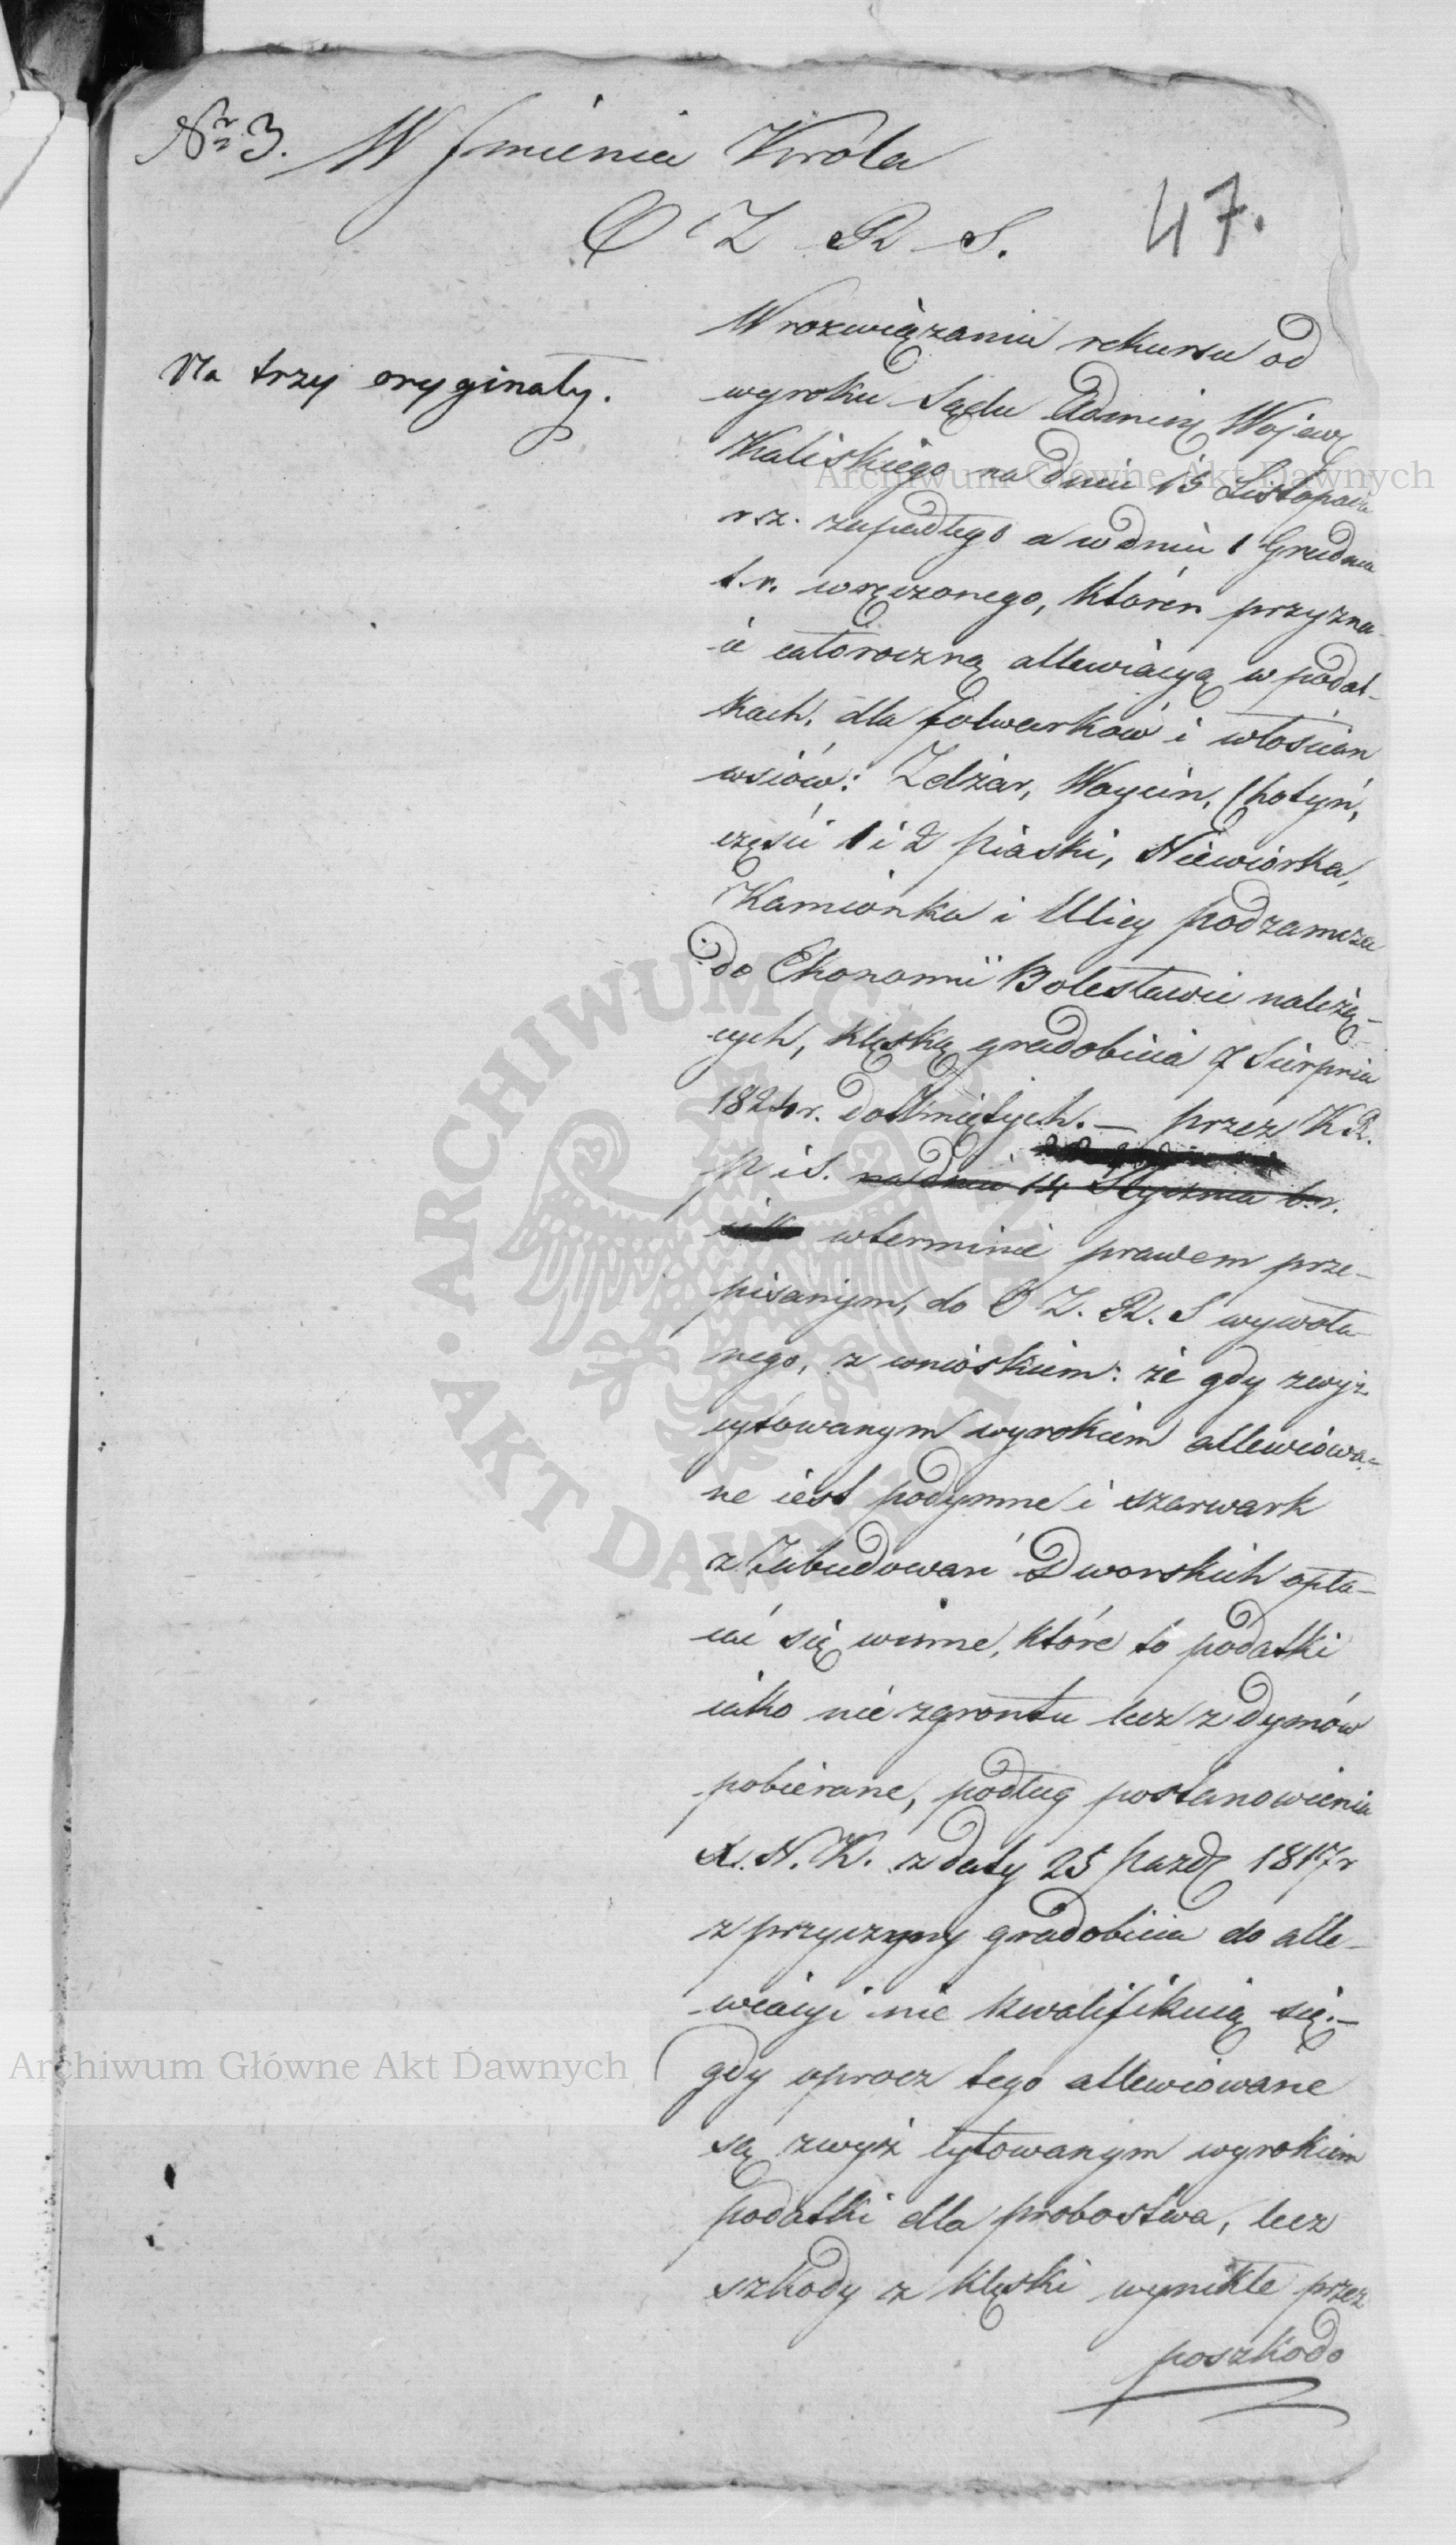 Nr 3. W Imieniu Króla
O Z R S.
47.
Na trzy oryginały.
W rozwiązaniu rekursu od
wyroku Sądu Admin Wojew
Kaliskiego na dniu 15 Listopada
r. z. zapadłego a w dniu 1 Grudnia
t. r. wręczonego, któren przyzna-
ie całoroczną allewiacyą w podat-
kach, dla folwarków i włościan
wsiów: Zdżar, Woycin, Chotyń,
części 1 i 2 Piaski, Niewiórka,
Kamionka i Ulicy podzamcza
do Ekonomii Bolesławie należą-
cych, klęską gradobicia 7 Sierpnia
1824 r. dotkniętych. — przez K R.
P i S. na dniu 14 Stycznia b. r.
w terminie prawem prze-
pisanym, do O Z. R. S wywoła-
nego, z wnioskiem: że gdy zwyż
cytowanym wyrokiem allewiowa-
ne iest podymne i szarwark
z Zabudowań Dworskich opła-
cać się winne, które to podatki
iako nie z grontu lecz z dymów
pobierane, podług postanowienia
X. N. K. z daty 25 Pazd 1817 r
z przyczyny gradobicia do alle-
wiacyi nie kwalifikuią się. —
gdy oprocz tego allewiowane
są zwyż cytowanym wyrokiem
podatki dla probostwa, lecz
szkody z klęski wynikłe przez
poszkodo
Archiwum Główne Akt Dawnych
Archiwum Główne Akt Dawnych
ARCHIWUM GŁÓWNE • AKT DAWNYCH •